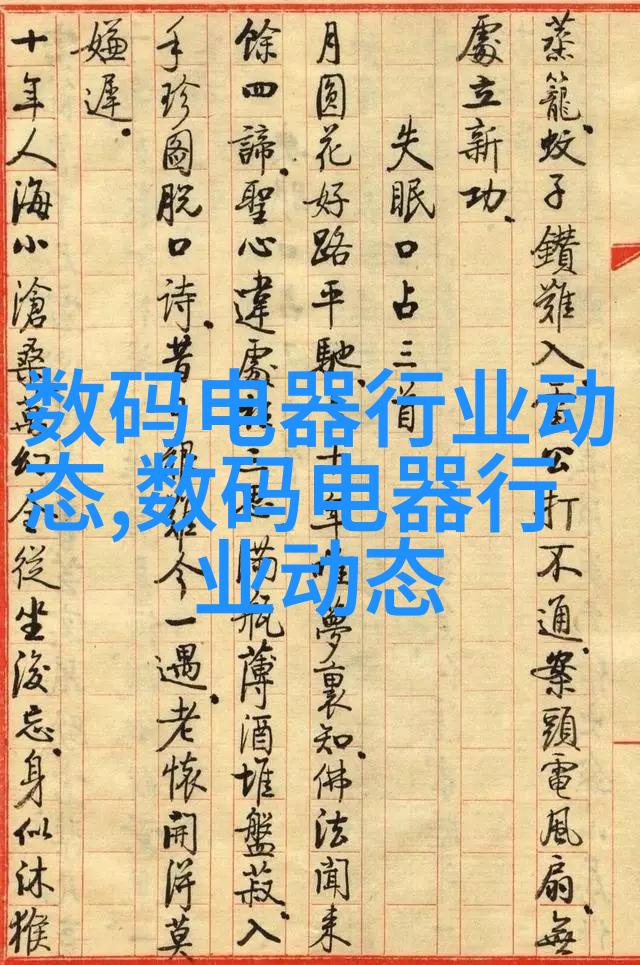 蒸籠蚊子鑽難入。雷公打不通。案頭電風扇。無
處立新功。
失眠口占三首
月圓花好路平馳。十年唯夢裏知。佛法聞來
餘四諦。聖心違處三思滿瓶薄酒堆盤菽。入
手珍圖脱口詩。昔今一遇。老懷開得莫
嫌遲。
十年人海小滄桑萬幻全從坐後忘。身似沐猴
数码电器行业动
态,数码电器行
业动态